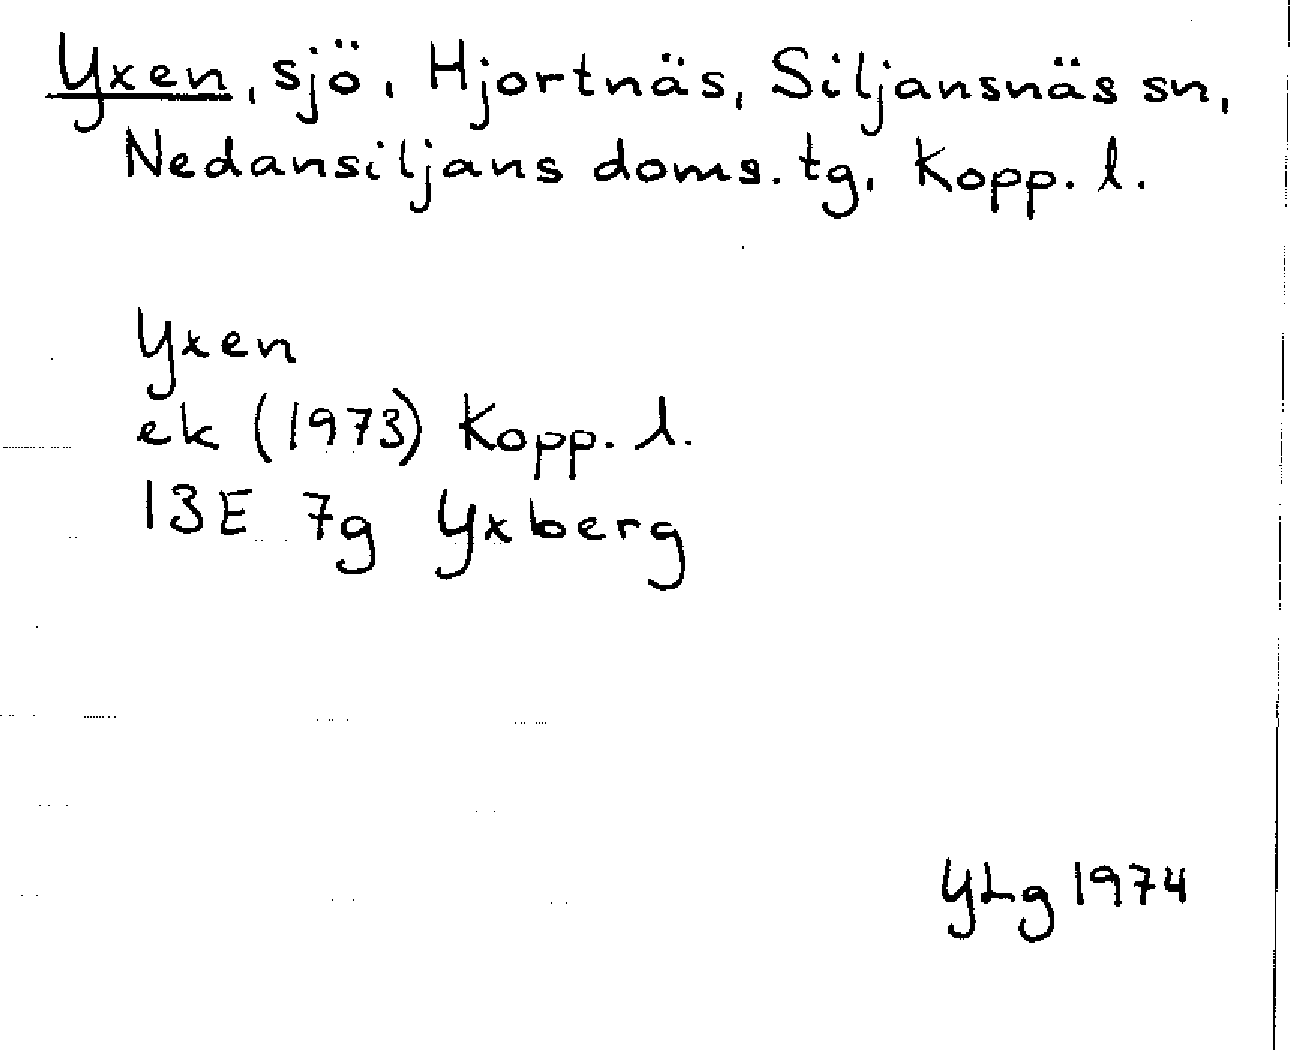 Yxen, sjö, Hjortnäs, Siljansnäs sn,
Nedansiljans doms. tg. Kopp. l.
Yxen
ek (1973) Kopp. l.
13E 7g Yxberg
YLg 1974